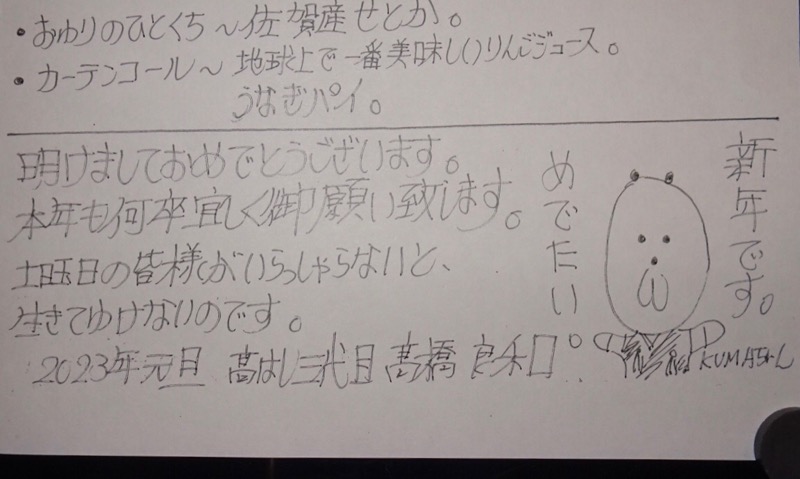 ・おゆりのひとくち～佐賀産せとか。
・カーテンコール～地球上で一番美味しいりんごジュース。
うなぎパイ。
明けましておめでとうございます。
本年も何卒宜しく御願い致します。
土曜日の皆様がいらっしゃらないと、
生きてゆけないのです。
2023年元旦 高はし三代目 高橋良和
新年です。
めでたい。
KUMAちゃん